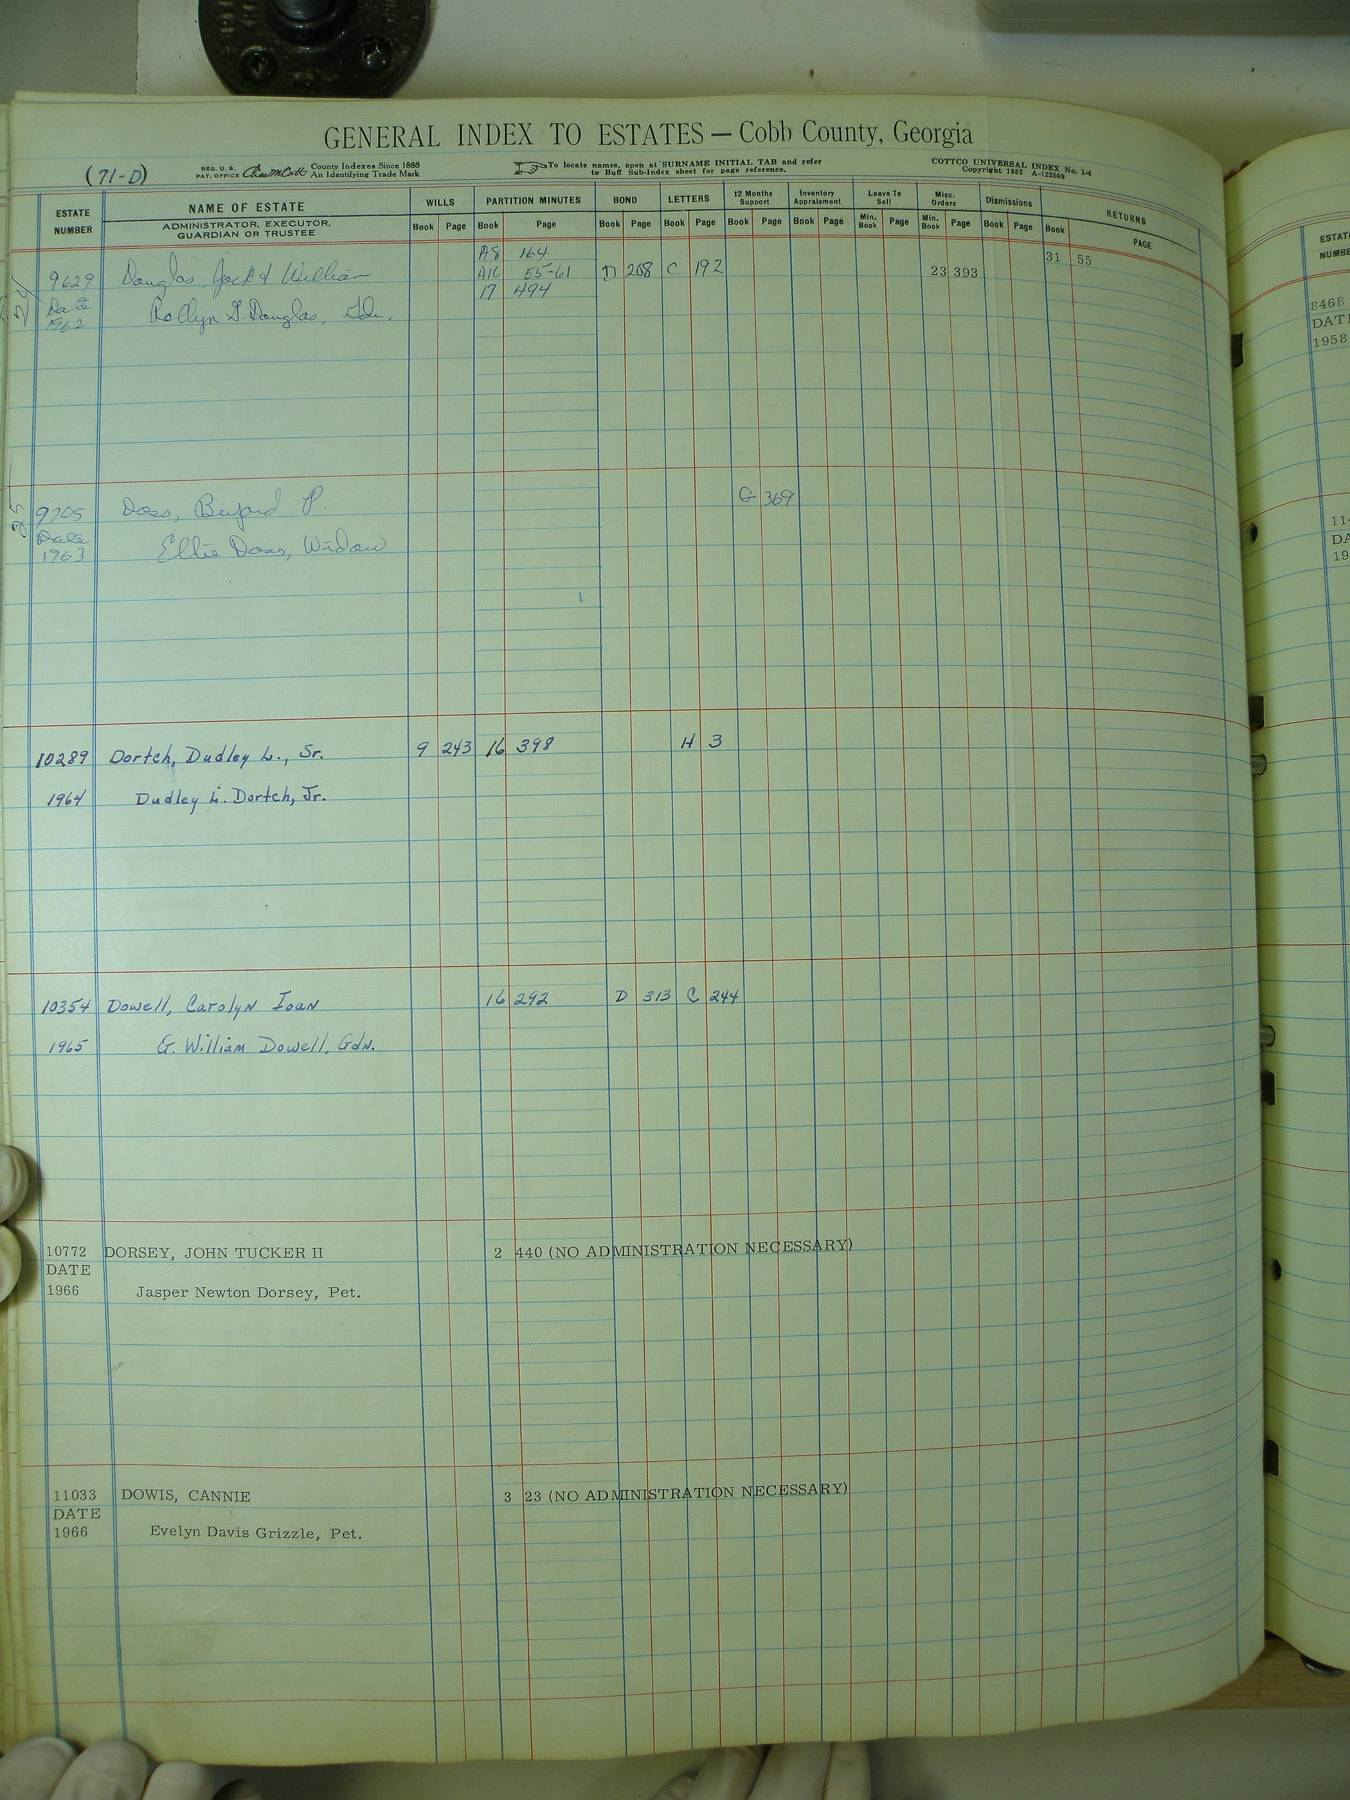 GENERAL INDEX TO ESTATES — Cobb County, Georgia
(71-D)
REG. U. S. PAT. OFFICE
County Indexes Since 1888
An Identifying Trade Mark
To locate names, open at SURNAME INITIAL TAB and refer
to Buff Sub-Index sheet for page reference.
COTTCO UNIVERSAL INDEX No. 1-4
Copyright 1953 A-122509
ESTATE NUMBER
NAME OF ESTATE
ADMINISTRATOR, EXECUTOR,
GUARDIAN OR TRUSTEE
WILLS PARTITION MINUTES BOND LETTERS 12 Months Support Inventory Appraisment Leave To Sell Misc. Orders Dismissions RETURNS
Book Page Book Page Book Page Book Page Book Page Book Page Min. Book Page Min. Book Page Book Page Book PAGE
A8 164
24 9629 Douglas, Jack & William A16 55-61 D 208 C 192 23 393 31 55
17 494
Date
1962 Rollyn G. Douglas, Gdn.
25 9705 Doss, Buford P. G 369
Date
1963 Ellie Doss, Widow
10289 Dortch, Dudley L., Sr. 9 243 16 398 H 3
1964 Dudley L. Dortch, Jr.
10354 Dowell, Carolyn Joan 16 292 D 313 C 244
1965 G. William Dowell, Gdn.
10772 DORSEY, JOHN TUCKER II 2 440 (NO ADMINISTRATION NECESSARY)
DATE
1966 Jasper Newton Dorsey, Pet.
11033 DOWIS, CANNIE 3 23 (NO ADMINISTRATION NECESSARY)
DATE
1966 Evelyn Davis Grizzle, Pet.
8468
1958